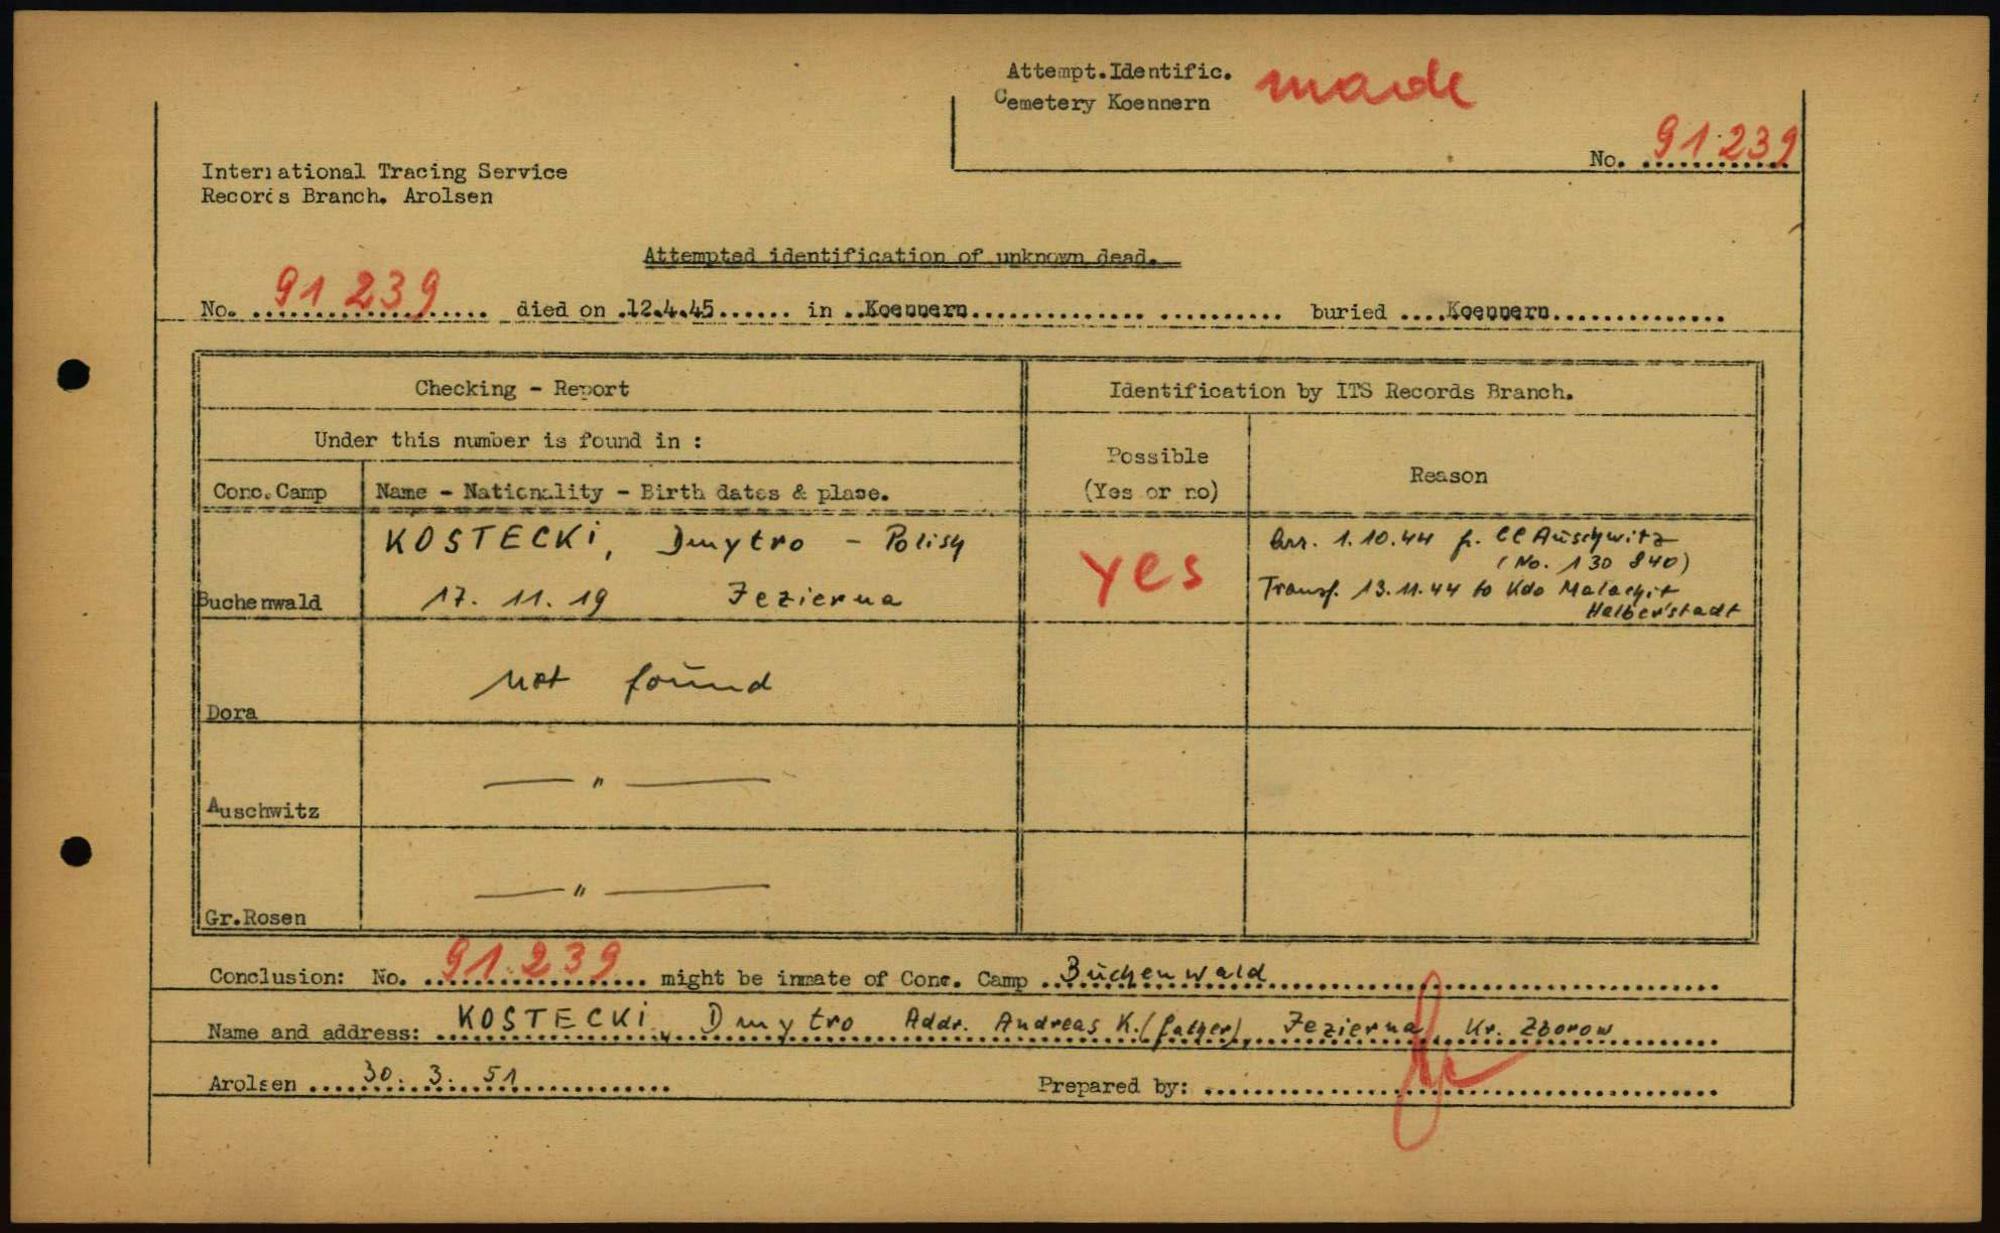 Attempt.Identific. made
Cemetery Koennern
No. 91 239
International Tracing Service
Records Branch. Arolsen
Attempted identification of unknown dead.
No. 91 239 died on .12.4.45...... in ..Koennern.............. .......... buried ....Koennern..............
Checking - Report
Identification by ITS Records Branch.
Under this number is found in :
Possible
(Yes or no)
Reason
Conc.Camp
Name - Nationality - Birth dates & place.
KOSTECKI, Dmytro - Polish
Buchenwald
17. 11. 19 Jezierna
yes
Arr. 1.10.44 fr. CC Auschwitz
(No. 130 840)
Transf. 13.11.44 to Kdo Malachit
Halberstadt
not found
Dora
— " —
Auschwitz
— " —
Gr.Rosen
Conclusion: No. 91.239 might be inmate of Conc. Camp Buchenwald
Name and address: KOSTECKI, Dmytro Addr. Andreas K. (father), Jezierna, Kr. Zborow
Arolsen 30. 3. 51
Prepared by: